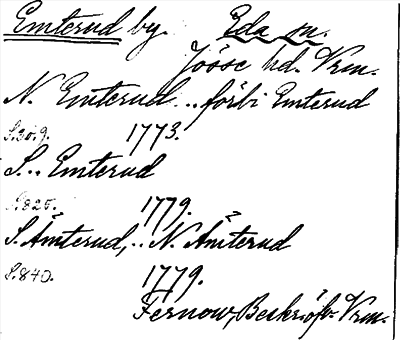 Emterud by. Eda sn.
Jösse hd. Vrm.
N. Emterud... förbi Emterud
S.309. 1773.
S... Emterud
S.820. 1779.
S. Ämterud,... N. Ämterud
S.840. 1779.
Fernow, Beskr. öfv. Vrm.